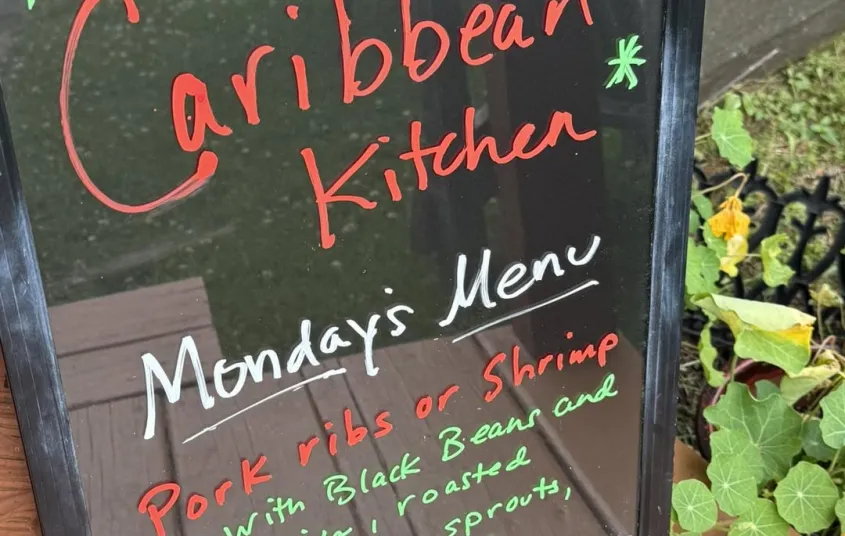 Caribbean
Kitchen *
Monday's Menu
Pork ribs or Shrimp
with Black Beans and
, roasted
sprouts,